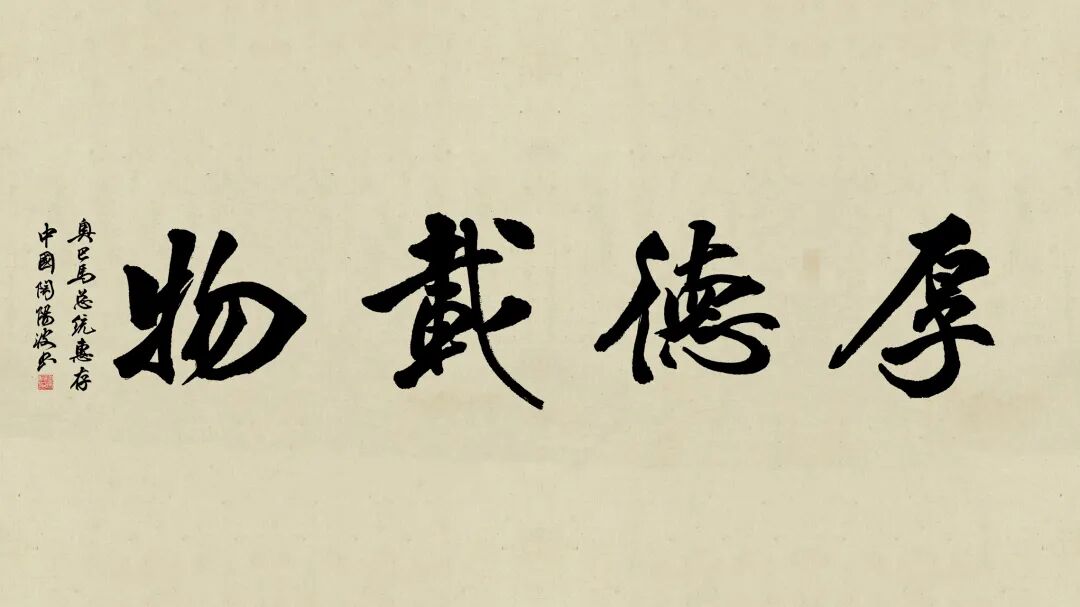 厚德載物
奥巴馬总统惠存
中國陽波书